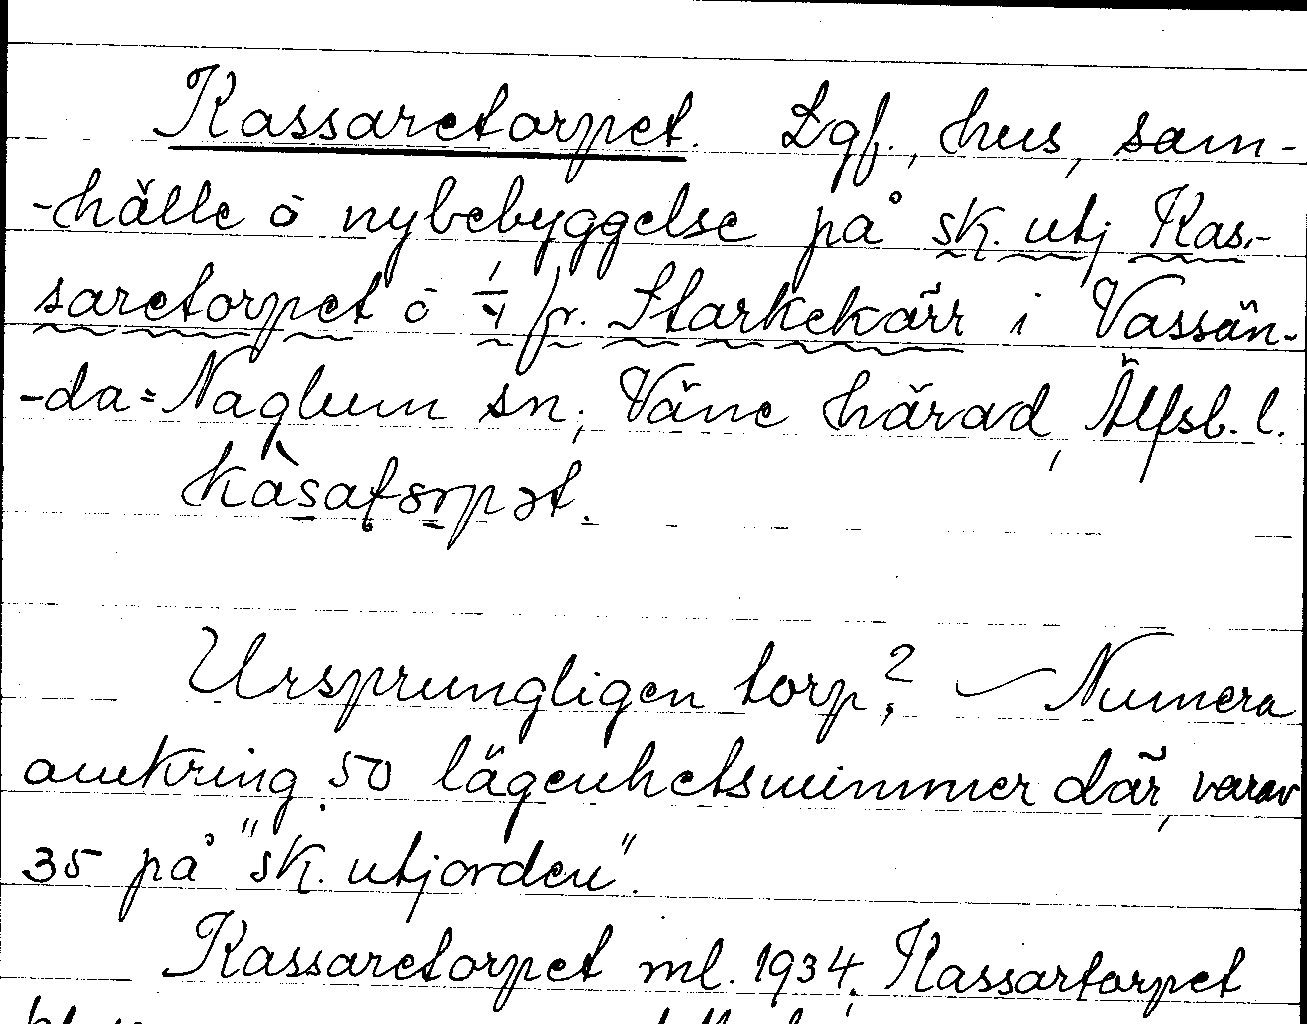 Kassaretorpet. Lgf., hus, sam-
-hälle o nybebyggelse på sk. utj Kas-
saretorpet o 1/4 fr. Starkekärr i Vassän-
-da=Naglum sn, Väne härad, Älfsb. l.
kàsatorpət.
Ursprungligen torp? – Numera
omkring 50 lägenhetsnummer där, varav
35 på "sk. utjorden".
Kassaretorpet ml. 1934, Kassartorpet